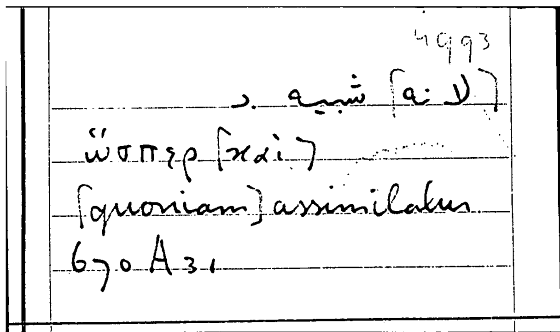 4993
[لانه] شبيه بـ
ὥσπερ [καὶ]
[quoniam] assimilatur
670 A 31